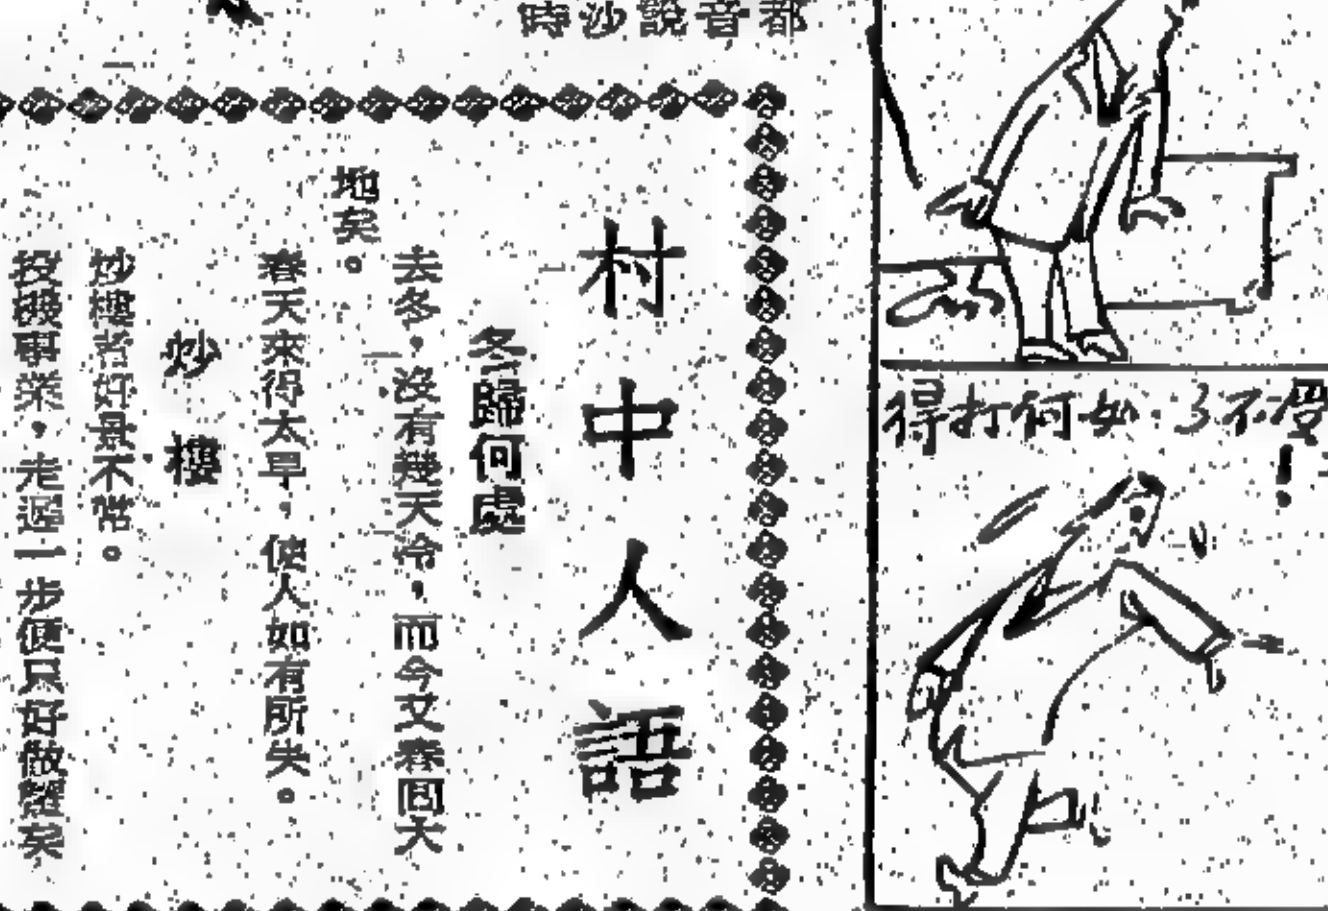 都音說沙時
得打何如·了不受
!
村中人語
冬歸何處
去冬，沒有幾天冷，而今又春回大
地矣。
春天來得太早，使人如有所失。
炒樓
炒樓者好景不常。
投機事業，走遲一步便只好做蟹矣